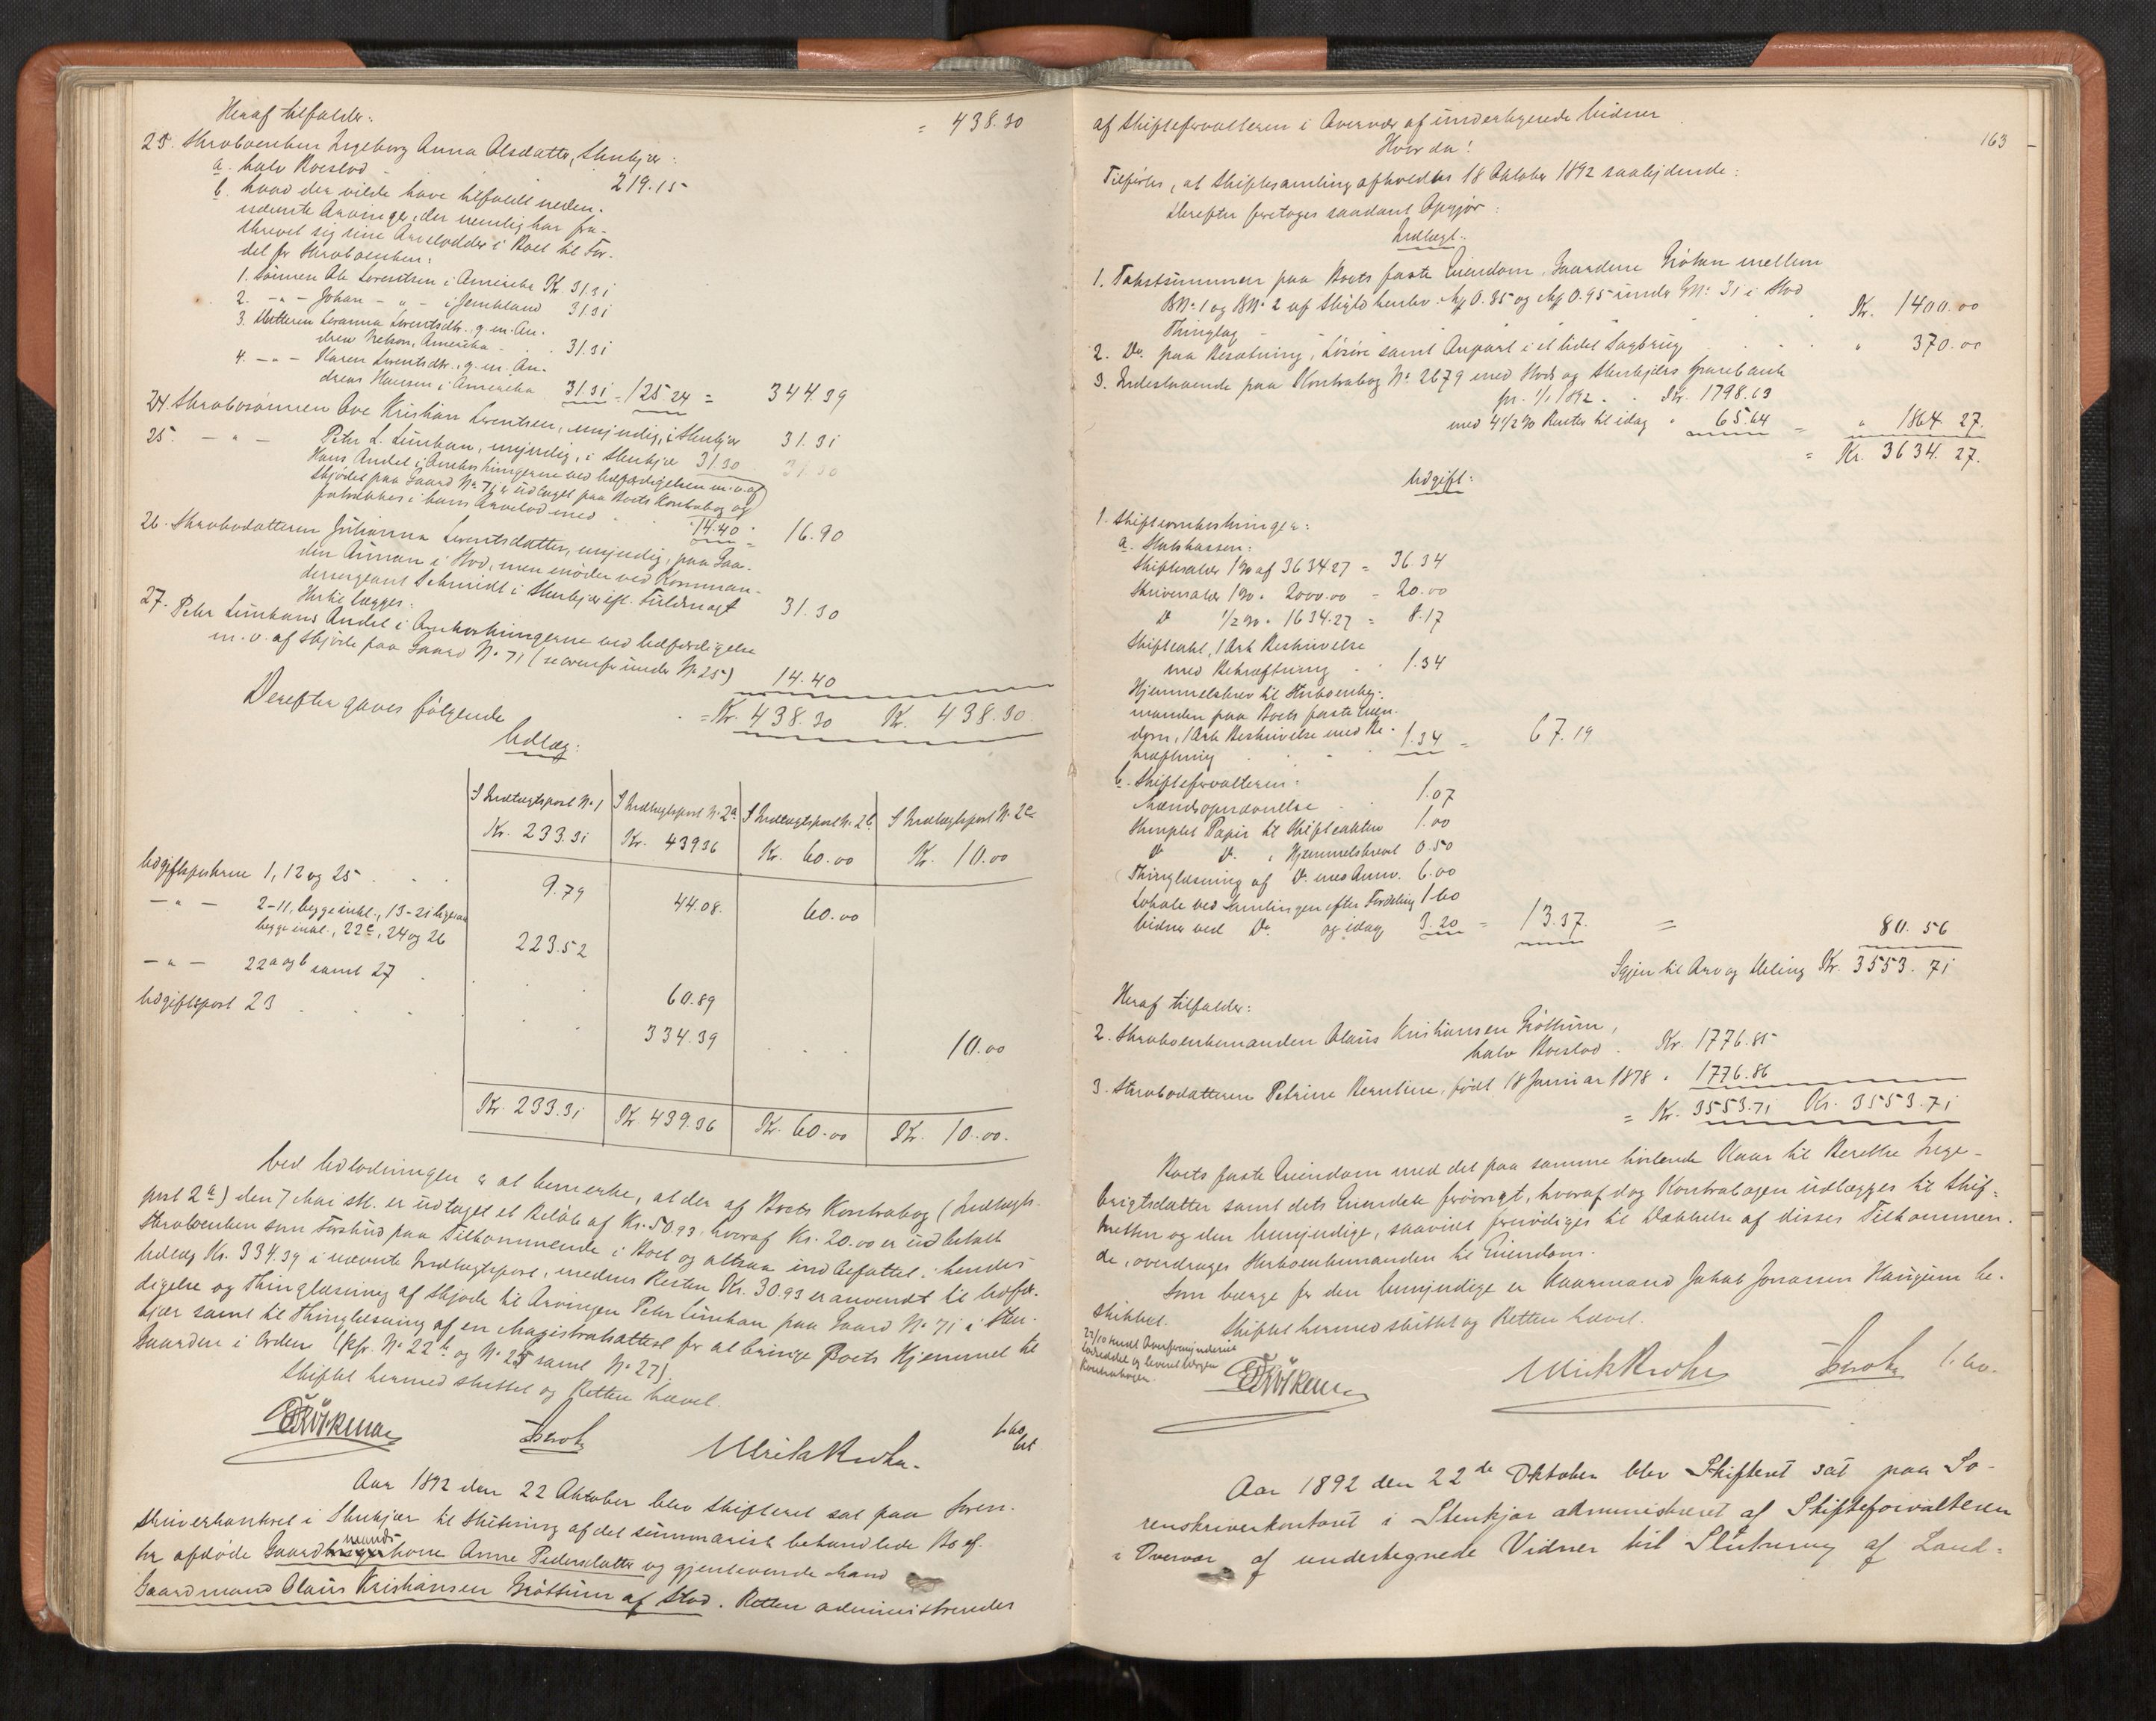 Heraf tilfalder:
= 438.30
23. Skraboenken Ingeborg Anna Olsdatter, Stenkjær:
a. halv Boeslod 219.15
b. hvad der vilde have tilfaldt neden-
nævnte Arvinger, der nemlig har fra-
skrevet sig sine Arvelodder i Boet til For-
del for Skraboenken:
1. Sønnen Ole Lorentsen i Amerika Kr. 31.31
2. -"- Johan -"- i Jemtland 31.31
3. Datteren Lovanna Lorentsdtr. g. m. An-
drew Nelson, Amerika 31.31
4. -"- Karen Lorentsdtr. g. m. An-
dreas Hansen i Amerika 31.31 = 125.24 = 344.39
24. Skrabosønnen Ove Kristian Lorentsen, umyndig, i Stenkjær 31.31
25. -"- Peter L. Lunhan, umyndig, i Stenkjær 31.30 31.30
Hans Andel i Omkostningerne ved Udfærdigelsen m. v. af
Skjødet paa Gaard No 71 er udtaget paa Boets Kontrabog og
fratrækkes i hans Arvelod med 14.40 = 16.90
26. Skrabodatteren Julianna Lorentsdatter, umyndig, paa Gaa-
den Aunan i Stod, men møder ved Komman-
dersergeant Schmidt i Stenkjær ifl. Fuldmagt 31.30
Hertil lægges:
27. Peter Lunhans Andel i Omkostningerne ved Udfærdigelse
m. v. af Skjøde paa Gaard No 71 (se ovenfor under No 25) 14.40
= Kr. 438.30 Kr. 438.30
Derefter gaves følgende
Udlæg:
I Indtægtspost No 1 I Indtægtspost No 2a I Indtægtspost No 2b I Indtægtspost No 2c
Kr. 233.31 Kr. 439.36 Kr. 60.00 Kr. 10.00
Udgiftsposterne 1, 12 og 25 9.79 44.08 60.00
-"- 2-11, begge inkl., 13-21 ligesaa
begge inkl., 22c, 24 og 26 223.52
-"- 22a og b samt 27 60.89
Udgiftspost 23 334.39 10.00
Kr. 233.31 Kr 439.36 Kr. 60.00 Kr. 10.00.
Ved Udlodningen er at bemerke, at der af Boets Kontrabog (Indtægts-
post 2a) den 7 Mai sk. er udtaget et Beløb af Kr. 50.93, hvoraf Kr. 20.00 er udbetalt
Skraboenken som Forskud paa Tilkommende i Boet og altsaa indbefattet i hendes
Udlæg Kr. 334.39 i nævnte Indtægtspost, medens Resten Kr. 30.93 er anvendt til Udfær-
digelse og Thinglæsning af Skjøde til Arvingen Peter Lunhan paa Gaard No 71 i Sten-
kjær samt til Thinglæsning af en Magistratsattest for at bringe Boets Hjemmel til
Gaarden i Orden (Kfr. No 22b og No 25 samt No 27).
Skiftet hermed sluttet og Retten hævet.
1.60
Ulrik Krohn.
Aar 1892 den 22 Oktober blev Skifteret sat paa Soren-
skriverkontoret i Stenkjær til Slutning af det summarisk behandlede Bo ef-
ter afdøde Gaardmandskone Anne Pedersdatter og gjenlevende Mand
Gaardmand Olaus Kristiansen Grøttum af Stod. Retten administreredes
163
af Skifteforvalteren i Overvær af undertegnede Vidner
Hvorda!
Tilførtes, at Skiftesamling afholdtes 18 Oktober 1892 saalydende:
Derefter foretoges saadant Opgjør:
Indtægt:
1. Takstsummen paa Boets faste Eiendom, Gaardene Grøtan mellem
BNo 1 og BNo 2 af Skyld henhv. Mk 0.35 og Mk 0.95 under GNo 31 i Stod
Thinglag Kr. 1400.00
2. Do. paa Besætning, Løsøre samt Anpart i et lidet Sagbrug " 370.00
3. Indestaaende paa Kontrabog No 2679 med Stods og Stenkjærs Sparebank
pr. 1/1 1892 Kr. 1798.63
med 4 1/2 % Renter til idag " 65.64 = " 1864.27.
= Kr. 3634.27.
Udgift:
1. Skifteomkostninger:
a. Statskassen:
Skiftesalær 1% af 3634.27 = 36.34
Skriversalær 1% " 2000.00 = 20.00
Do 1/2 % " 1634.27 = 8.17
Skifteakt, 1 Ark Beskrivelse
med Bekræftning 1.34
Hjemmelsbrev til Skraboenke-
manden paa Boets faste Eien-
dom, 1 Ark Beskrivelse med Be-
kræftning 1.34 = 67.19
b. Skifteforvalteren:
Mændsopnævnelse 1.07
Stemplet Papir til Skifteakten 1.00
Do Do. " Hjemmelsbrevet 0.50
Thinglæsning af Do. med Anm. 6.00
Lokale ved Samlingen efter Fordeling 1.60
Vidner ved Do. og idag 3.20 = 13.37. = 80.56
Igjen til Arv og Deling Kr. 3553.71
Heraf tilfalder:
2. Skraboenkemanden Olaus Kristiansen Grøttum,
halv Boeslod Kr. 1776.85
3. Skrabodatteren Petrine Berntine, født 18 Januar 1878 " 1776.86
= Kr. 3553.71 Kr. 3553.71
Boets faste Eiendom med det paa samme hvilende Kaar til Berethe Inge-
brigtsdatter samt dets Eiendele forøvrigt, hvoraf dog Kontrabogen udlægges til Skif-
teretten og den Umyndige, saavidt fornødiges til Dækkelse af disses Tilkommen-
de, overdrages Skraboenkemanden til Eiendom.
Som Værge for den Umyndige er Kaarmand Jakob Jonassen Haugum be-
skikket.
Skiftet hermed sluttet og Retten hævet.
Kontrabogen.
Ulrik Krohn 1.60.
Aar 1892 den 22de Oktober blev Skifteret sat paa So-
renskriverkontoret i Stenkjær administreret af Skifteforvalteren
i Overvær af undertegnede Vidner til Slutning af Land-